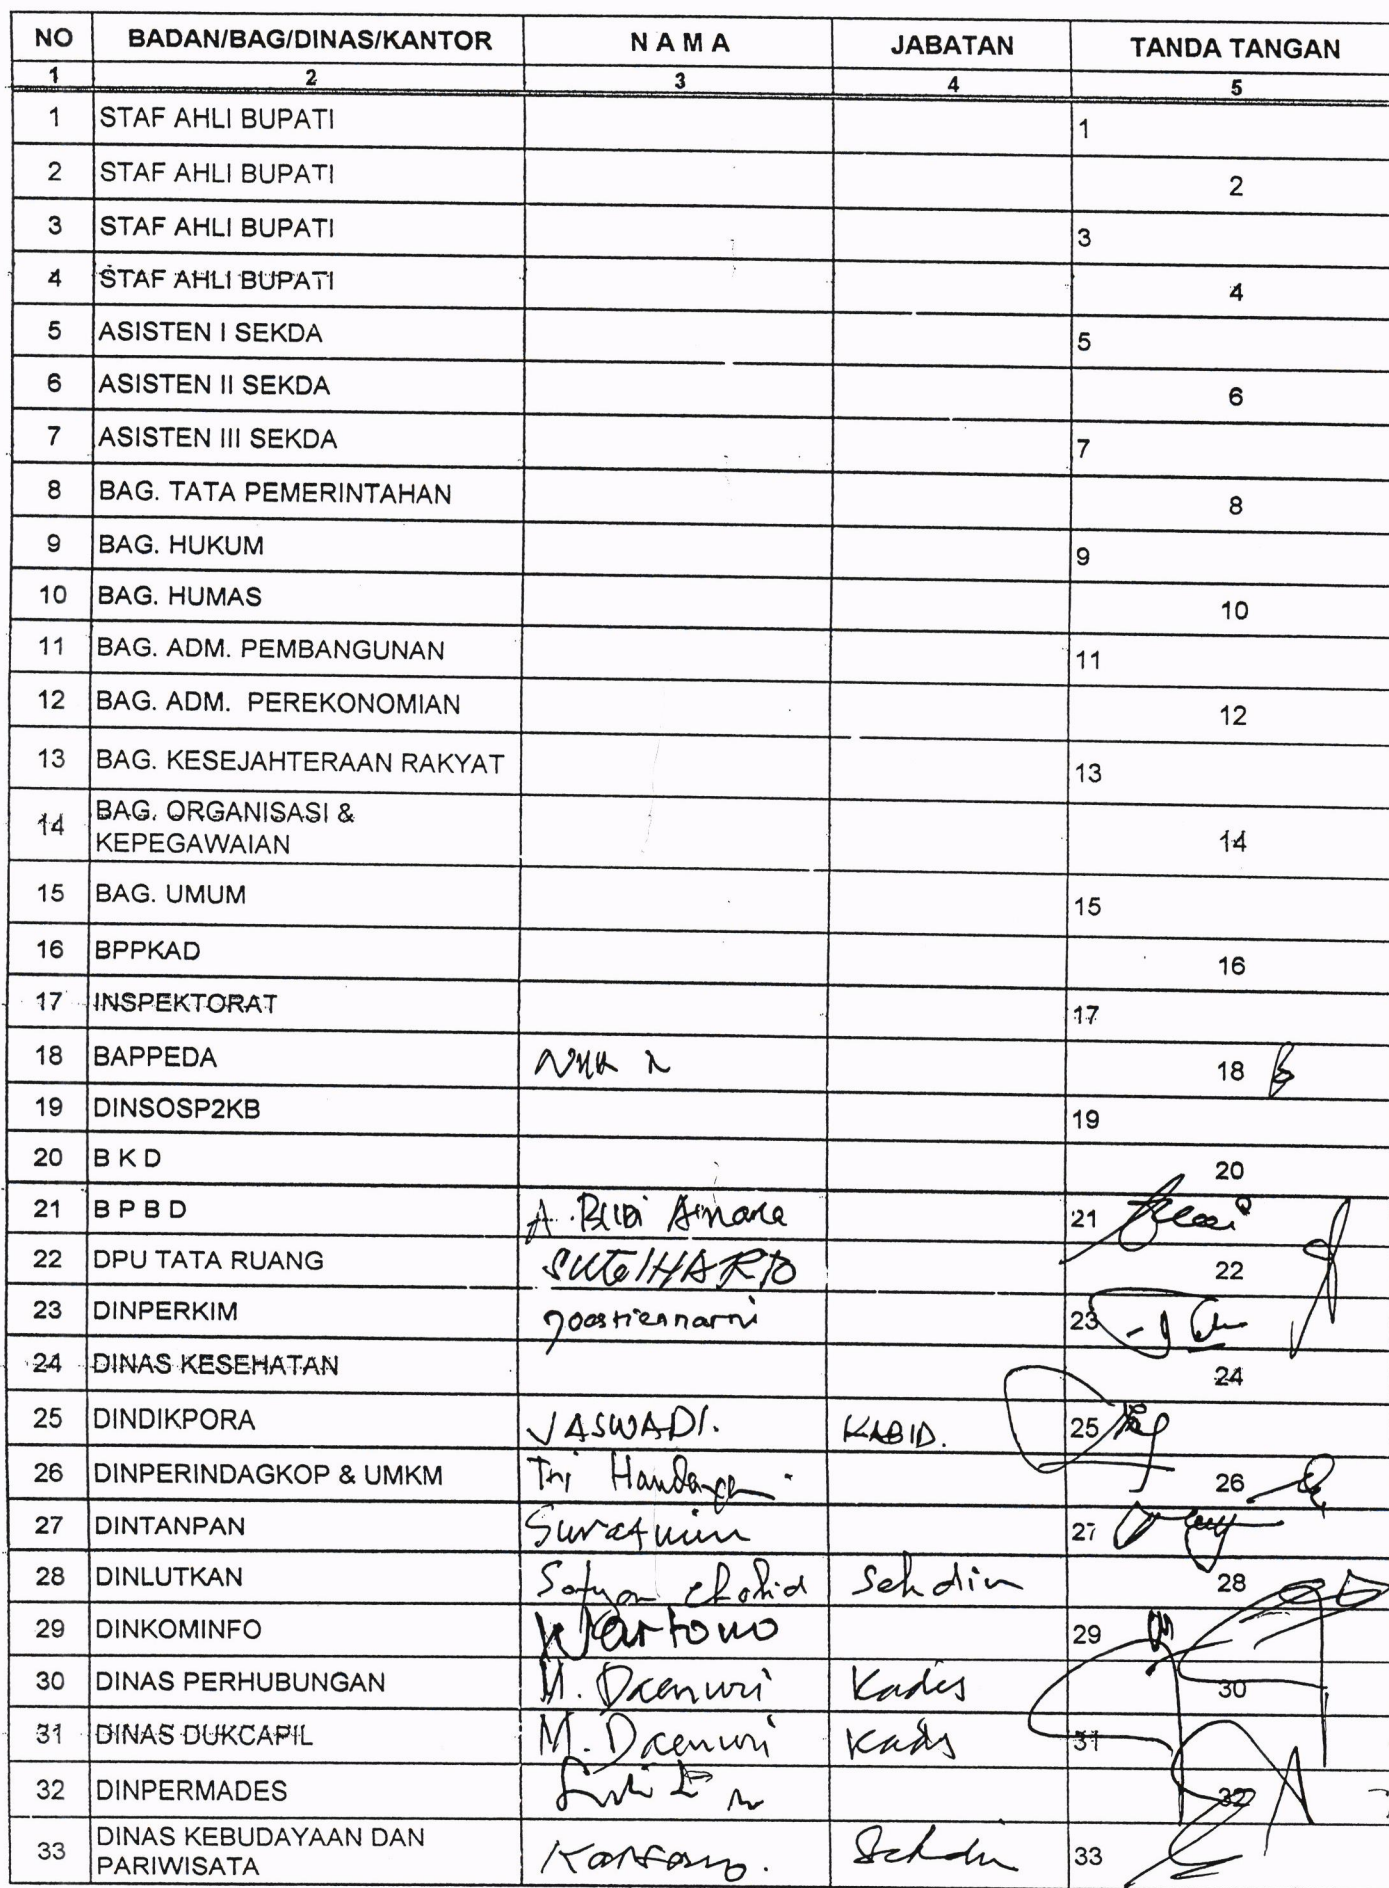 NO BADAN/BAG/DINAS/KANTOR N A M A JABATAN TANDA TANGAN
1 2 3 4 5
1 STAF AHLI BUPATI 1
2 STAF AHLI BUPATI 2
3 STAF AHLI BUPATI 3
4 STAF AHLI BUPATI 4
5 ASISTEN I SEKDA 5
6 ASISTEN II SEKDA 6
7 ASISTEN III SEKDA 7
8 BAG. TATA PEMERINTAHAN 8
9 BAG. HUKUM 9
10 BAG. HUMAS 10
11 BAG. ADM. PEMBANGUNAN 11
12 BAG. ADM. PEREKONOMIAN 12
13 BAG. KESEJAHTERAAN RAKYAT 13
14 BAG. ORGANISASI &
KEPEGAWAIAN 14
15 BAG. UMUM 15
16 BPPKAD 16
17 INSPEKTORAT 17
18 BAPPEDA 18
19 DINSOSP2KB 19
20 B K D 20
21 B P B D A. Budi 21
22 DPU TATA RUANG 22
23 DINPERKIM 23
24 DINAS KESEHATAN 24
25 DINDIKPORA JASWADI. KABID. 25
26 DINPERINDAGKOP & UMKM Tri 26
27 DINTANPAN 27
28 DINLUTKAN Sekdin 28
29 DINKOMINFO Wartono 29
30 DINAS PERHUBUNGAN M. Daenuri Kadis 30
31 DINAS DUKCAPIL M. Daenuri Kadis 31
32 DINPERMADES 32
33 DINAS KEBUDAYAAN DAN
PARIWISATA Sekdin 33